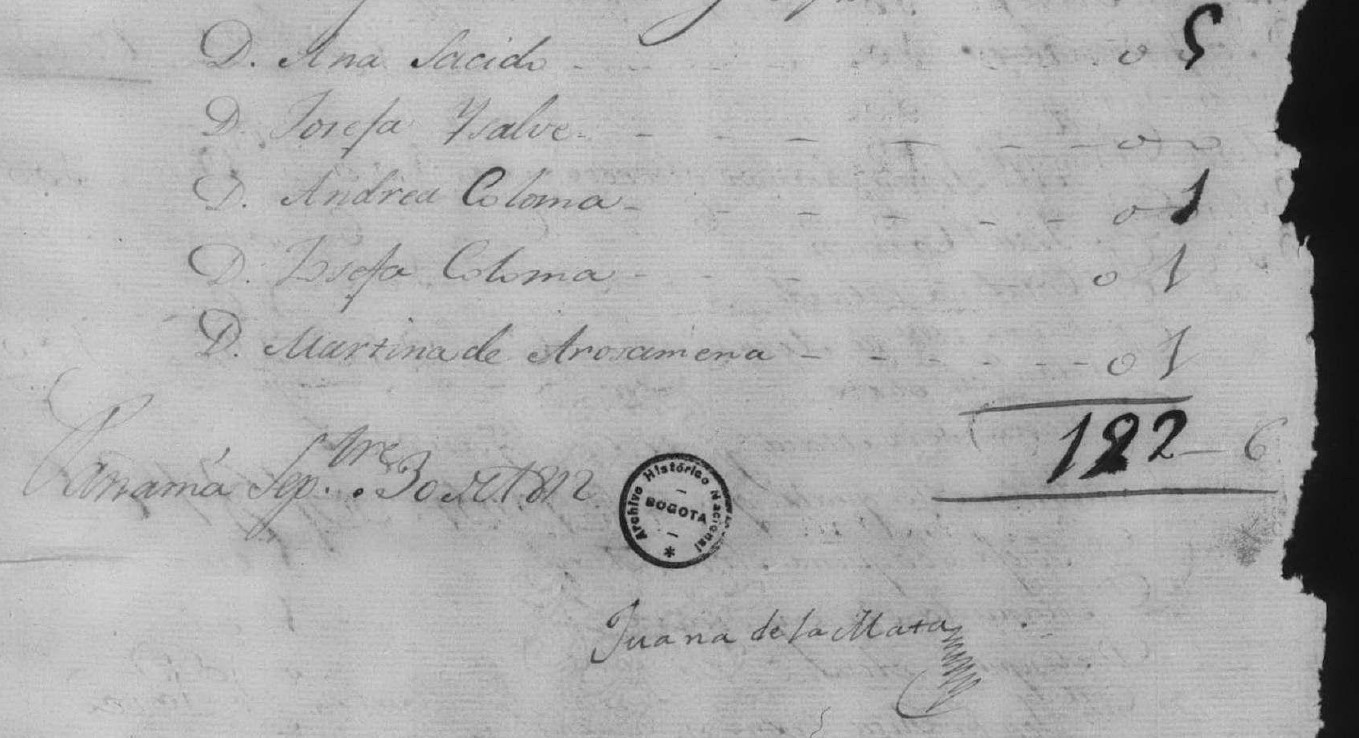 D. Ana Sacido - - - - - - o 5
D. Josefa Ysalve - - - - - - o o
D. Andrea Coloma - - - - - - o 1
D. Josefa Coloma - - - o 1
D. Martina de Arosamena - - - - - - o 1
122 - 6
Panamá Sep.tre 30 de 1812
Archivo Histórico Nacional
BOGOTA
Juana de la Mata